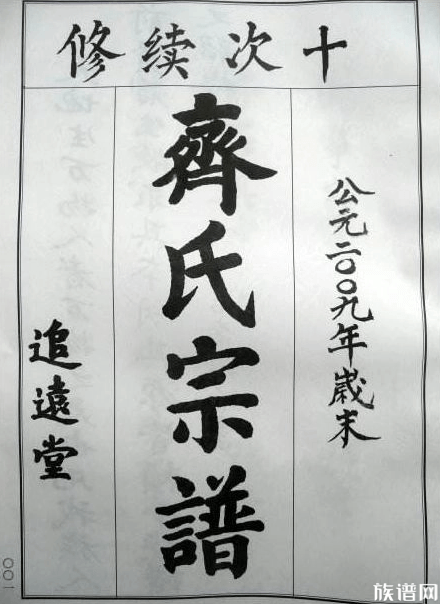 十次续修
公元二〇〇九年歲末
齊氏宗譜
追遠堂
〇〇一
族谱网